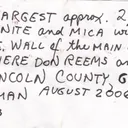 LARGEST approx. 2
NITE AND MICA wi
, WALL of the MAIN
HERE DON REEMS an
INCOLN COUNTY, G
MAN AUGUST 2006